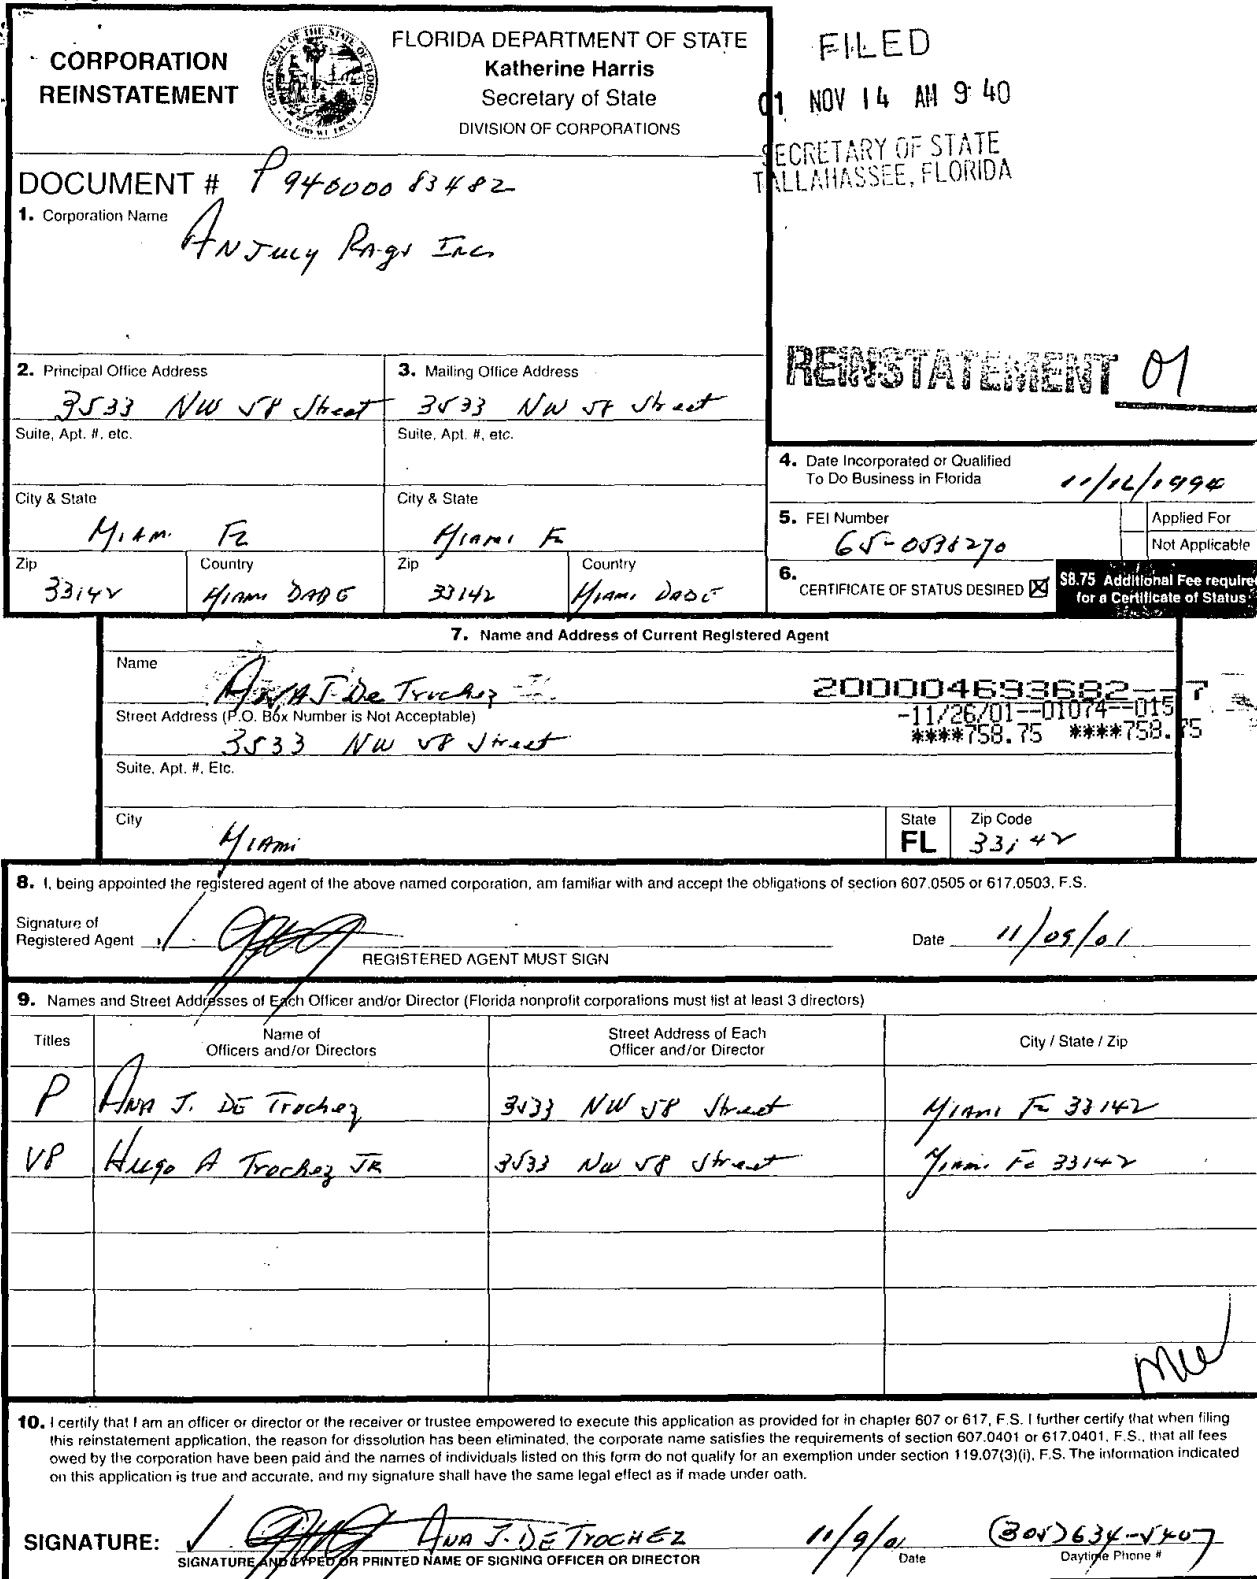 CORPORATION
REINSTATEMENT
FLORIDA DEPARTMENT OF STATE
Katherine Harris
Secretary of State
DIVISION OF CORPORATIONS
FILED
01 NOV 14 AM 9:40
SECRETARY OF STATE
TALLAHASSEE, FLORIDA
DOCUMENT # P94000083482
1. Corporation Name
ANJULY Rags Inc
REINSTATEMENT 01
2. Principal Office Address
3533 NW 58 Street
3. Mailing Office Address
3533 NW 58 Street
Suite, Apt. #, etc.
Suite, Apt. #, etc.
City & State
Miami FL
City & State
Miami FL
Zip
33142
Country
Miami DADE
Zip
33142
Country
Miami DADE
4. Date Incorporated or Qualified
To Do Business in Florida
11/12/1994
5. FEI Number
65-0538270
Applied For
Not Applicable
6.
CERTIFICATE OF STATUS DESIRED ☒
$8.75 Additional Fee require
for a Certificate of Status
7. Name and Address of Current Registered Agent
Name
ANA J. De Trochez
200004693682--7
-11/26/01--01074--015
****758.75 ****758.75
Street Address (P.O. Box Number is Not Acceptable)
3533 NW 58 Street
Suite, Apt. #, Etc.
City
Miami
State
FL
Zip Code
33142
8. I, being appointed the registered agent of the above named corporation, am familiar with and accept the obligations of section 607.0505 or 617.0503, F.S.
Signature of
Registered Agent
REGISTERED AGENT MUST SIGN
Date 11/09/01
9. Names and Street Addresses of Each Officer and/or Director (Florida nonprofit corporations must list at least 3 directors)
Titles
Name of
Officers and/or Directors
Street Address of Each
Officer and/or Director
City / State / Zip
P ANA J. DE Trochez 3533 NW 58 Street Miami FL 33142
VP Hugo A Trochez JR 3533 NW 58 Street Miami FL 33142
10. I certify that I am an officer or director or the receiver or trustee empowered to execute this application as provided for in chapter 607 or 617, F.S. I further certify that when filing
this reinstatement application, the reason for dissolution has been eliminated, the corporate name satisfies the requirements of section 607.0401 or 617.0401, F.S., that all fees
owed by the corporation have been paid and the names of individuals listed on this form do not qualify for an exemption under section 119.07(3)(i), F.S. The information indicated
on this application is true and accurate, and my signature shall have the same legal effect as if made under oath.
SIGNATURE: ANA J. DE TROCHEZ 11/9/01 (305)634-5407
SIGNATURE AND TYPED OR PRINTED NAME OF SIGNING OFFICER OR DIRECTOR
Date
Daytime Phone #